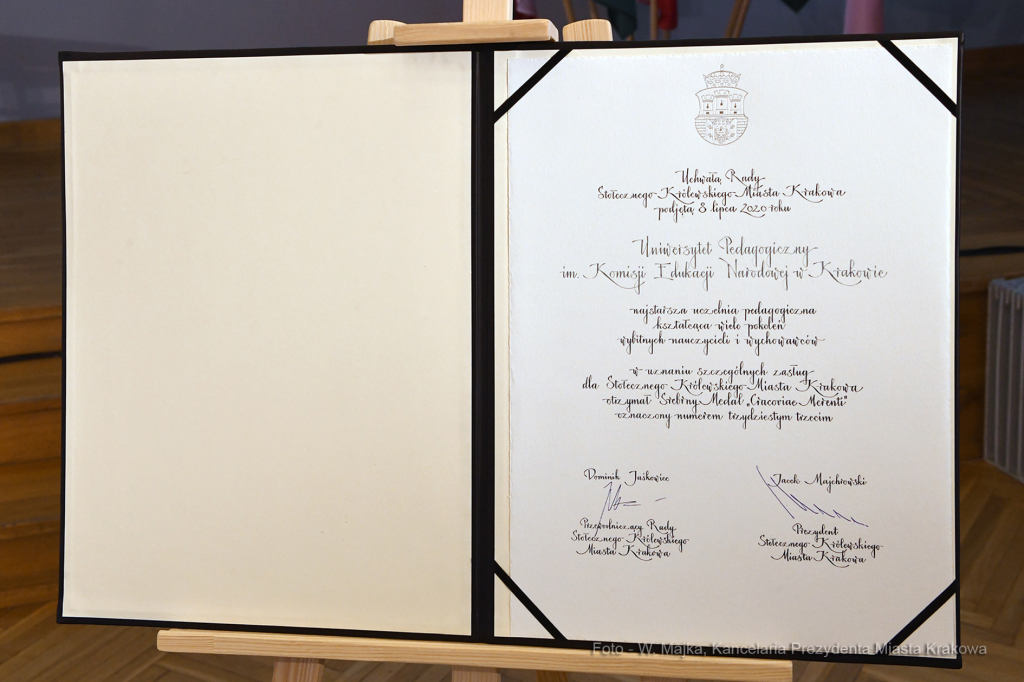 Uchwałą Rady
Stołecznego Królewskiego Miasta Krakowa
podjętą 8 lipca 2020 roku
Uniwersytet Pedagogiczny
im. Komisji Edukacji Narodowej w Krakowie
najstarsza uczelnia pedagogiczna
kształcąca wiele pokoleń
wybitnych nauczycieli i wychowawców
w uznaniu szczególnych zasług
dla Stołecznego Królewskiego Miasta Krakowa
otrzymał Srebrny Medal „Cracoviae Merenti"
oznaczony numerem trzydziestym trzecim
Dominik Jaśkowiec
Przewodniczący Rady
Stołecznego Królewskiego
Miasta Krakowa
Jacek Majchrowski
Prezydent
Stołecznego Królewskiego
Miasta Krakowa
Foto - W. Majka, Kancelaria Prezydenta Miasta Krakowa